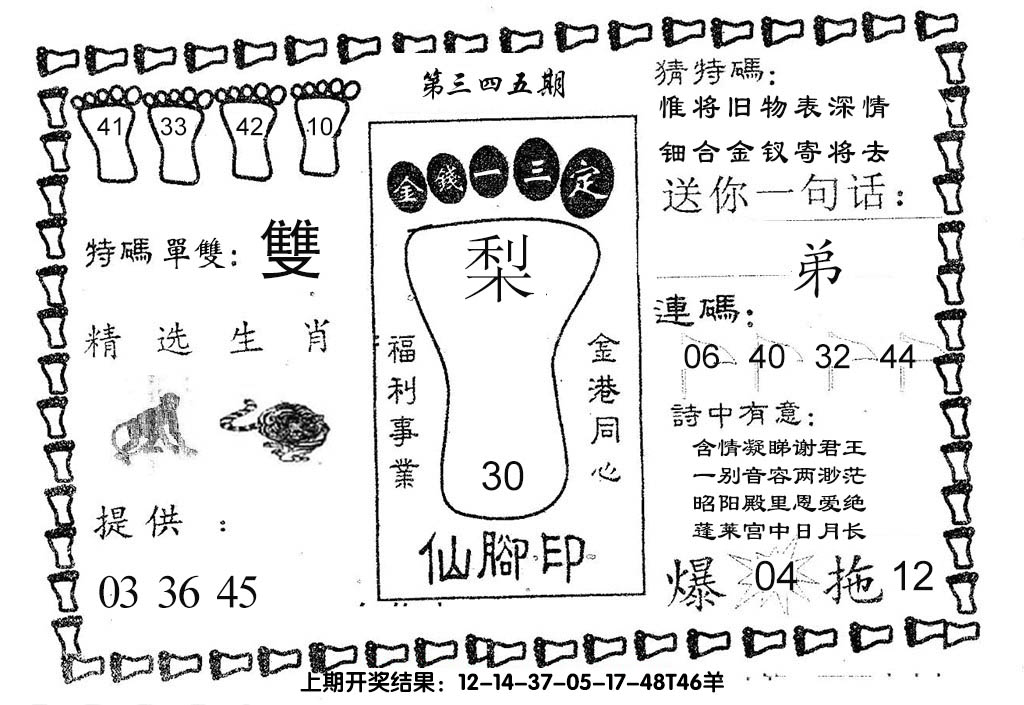 第三四五期
41 33 42 10
特碼單雙：雙
精选生肖
提供：
03 36 45
金錢一三定
梨
福利事業
金港同心
30
仙腳印
猜特碼：
惟将旧物表深情
钿合金钗寄将去
送你一句话：
弟
連碼：
06 40 32 44
詩中有意：
含情凝睇谢君王
一别音容两渺茫
昭阳殿里恩爱绝
蓬莱宫中日月长
爆 04 拖 12
上期开奖结果：12-14-37-05-17-48T46羊